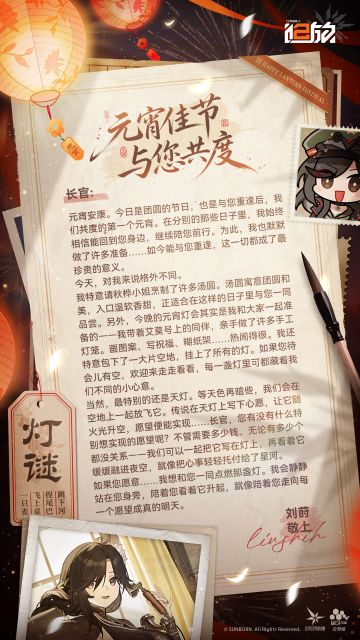 HAPPY LANTERN FESTIVAL
元宵佳节
与您共度
长官：
元宵安康。今日是团圆的节日，也是与您重逢后，我
们共度的第一个元宵。在分别的那些日子里，我始终
相信能回到您身边，继续陪您前行。为此，我也默默
做了许多准备……如今能与您重逢，这一切都成了最
珍贵的意义。
今天，对我来说格外不同。
我特意请秋桦小姐烹制了许多汤圆。汤圆寓意团圆和
美，入口温软香甜，正适合在这样的日子里与您一同
品尝。另外，今晚的元宵灯会其实是我和大家一起准
备的——我带着艾莫号上的同伴，亲手做了许多手工
灯笼。画图案、写祝福、糊纸架……热闹得很。我还
特意包下了一大片空地，挂上了所有的灯。如果您待
会儿有空，欢迎来走走看看，每一盏灯里可都藏着我
们不同的小心意。
当然，最特别的还是天灯。等天色再暗些，我们会在
空地上一起放飞它。传说在天灯上写下心愿，让它随
火光升空，愿望便能实现……长官，您有没有什么特
别想实现的愿望呢？不管需要多少钱、无论有多少个
都没关系——我们可以一起把它写在灯上，再看着它
缓缓融进夜空，就像把心事轻轻托付给了星河。
如果您愿意……我想和您一同点燃那盏灯。我会静静
站在您身旁，陪着您看着它升起，就像陪着您走向每
一个愿望成真的明天。
刘蔚
敬上
灯谜
跳下河
捏尾巴
飞上桌
一只雀
© SUNBORN. All Rights Reserved.